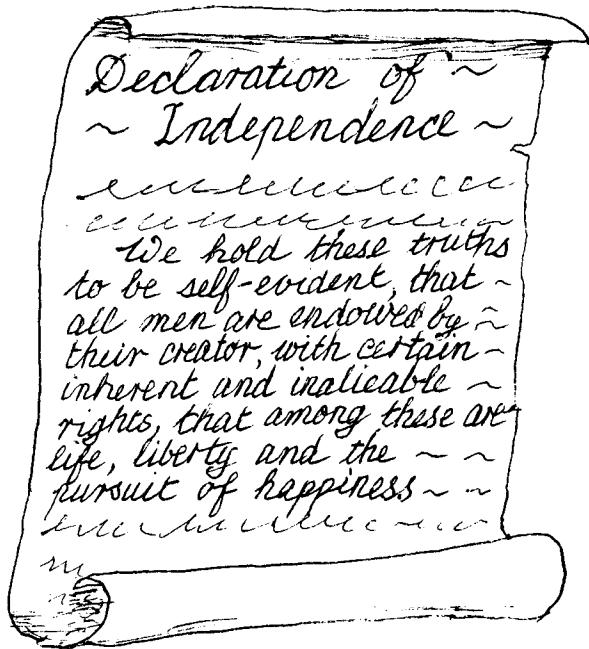 Declaration of ~
~ Independence ~
We hold these truths
to be self-evident, that ~
all men are endowed by ~
their creator, with certain ~
inherent and inalieable ~
rights, that among these are
life, liberty and the ~ ~
pursuit of happiness ~ ~